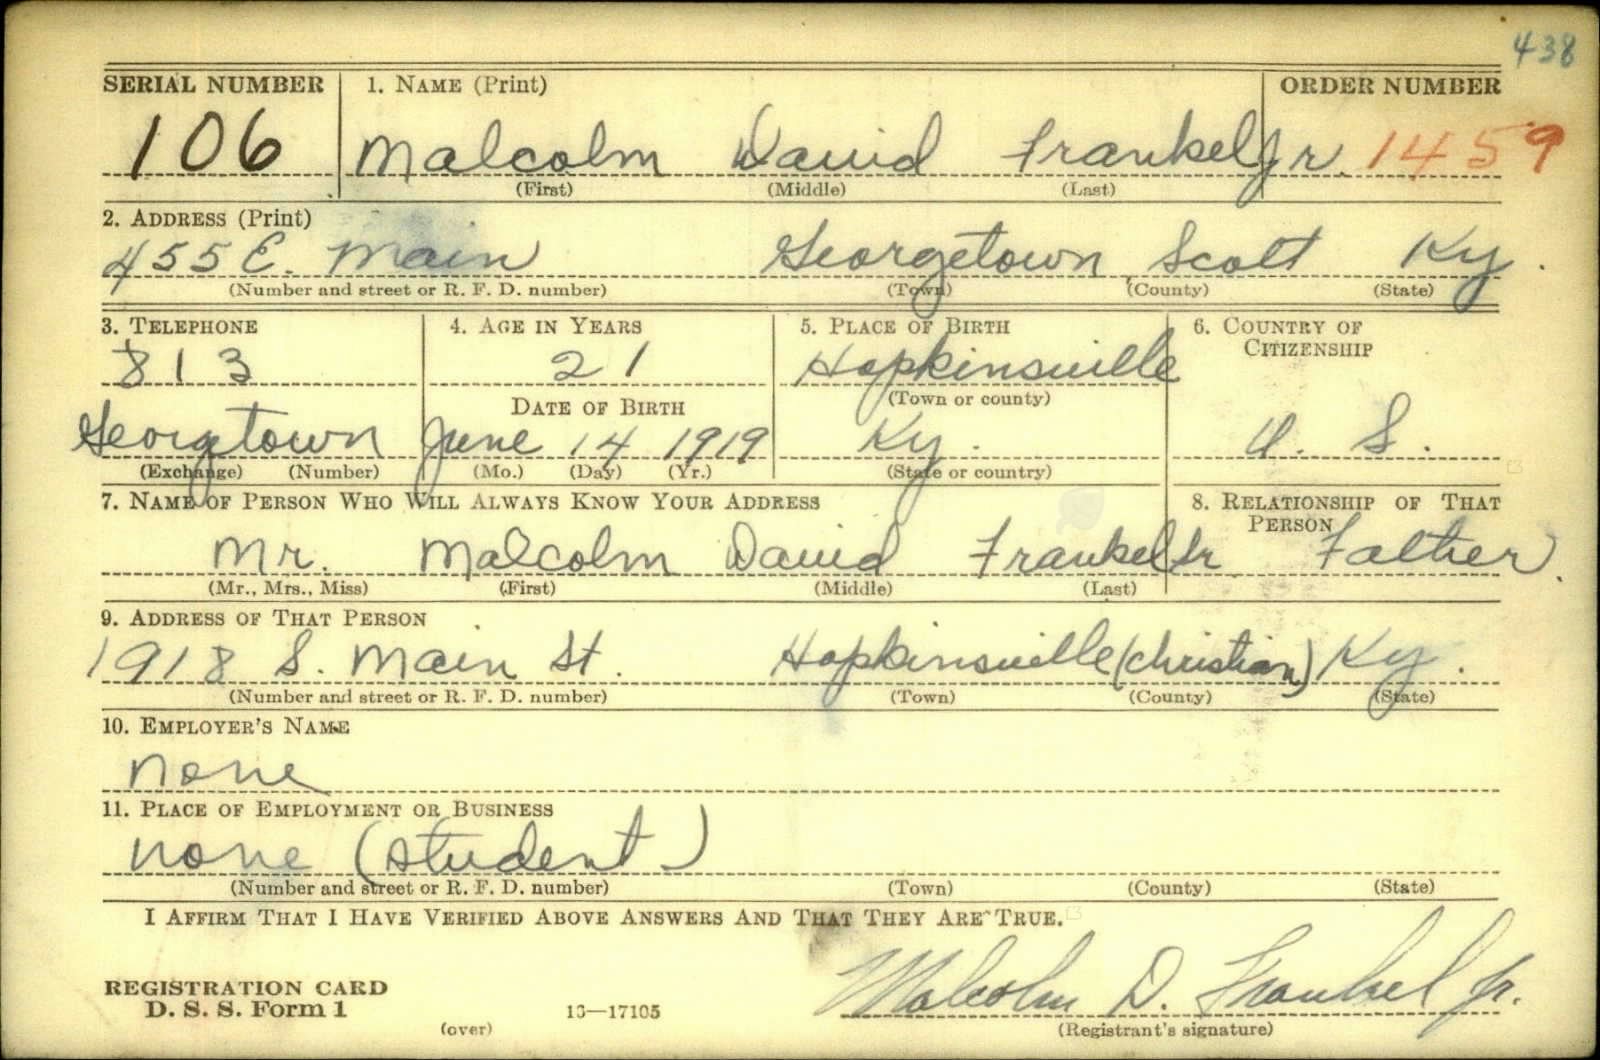 438
SERIAL NUMBER 1. NAME (Print) ORDER NUMBER
106 Malcolm David Frankel Jr. 1459
(First) (Middle) (Last)
2. ADDRESS (Print)
455 E. Main Georgetown, Scott Ky.
(Number and street or R. F. D. number) (Town) (County) (State)
3. TELEPHONE 4. AGE IN YEARS 5. PLACE OF BIRTH 6. COUNTRY OF CITIZENSHIP
813 21 Hopkinsville
DATE OF BIRTH (Town or county)
Georgetown June 14 1919 Ky. U. S.
(Exchange) (Number) (Mo.) (Day) (Yr.) (State or country)
7. NAME OF PERSON WHO WILL ALWAYS KNOW YOUR ADDRESS 8. RELATIONSHIP OF THAT PERSON
Mr. Malcolm David Frankel Sr. Father.
(Mr., Mrs., Miss) (First) (Middle) (Last)
9. ADDRESS OF THAT PERSON
1918 S. Main St. Hopkinsville (Christian) Ky.
(Number and street or R. F. D. number) (Town) (County) (State)
10. EMPLOYER'S NAME
none
11. PLACE OF EMPLOYMENT OR BUSINESS
none (student)
(Number and street or R. F. D. number) (Town) (County) (State)
I AFFIRM THAT I HAVE VERIFIED ABOVE ANSWERS AND THAT THEY ARE TRUE.
Malcolm D. Frankel Jr.
REGISTRATION CARD
D. S. S. Form 1 16—17105
(over) (Registrant's signature)